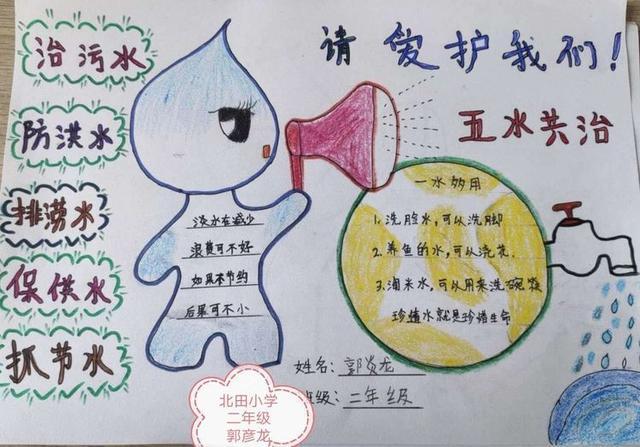 治污水
防洪水
排涝水
保供水
抓节水
请爱护我们!
五水共治
淡水在减少
浪费可不好
如果不节约
后果可不小
一水多用
1.洗脸水,可以洗脚
2.养鱼的水,可以浇花.
3.淘米水,可以用来洗碗筷
珍惜水就是珍惜生命
姓名:郭彦龙
班级:二年级
北田小学
二年级
郭彦龙